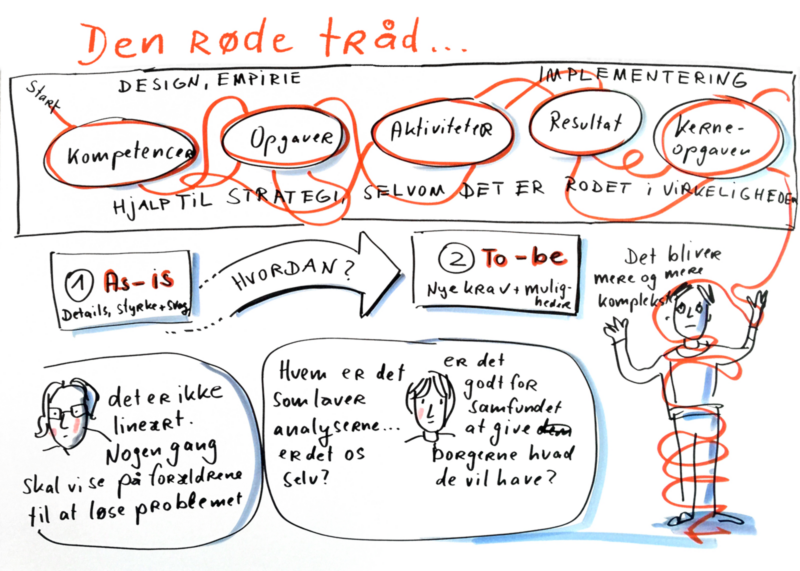 Den RØDE TRÅD...
Start
DESIGN, EMPIRIE
IMPLEMENTERING
Kompetencer
Opgaver
Aktiviteter
Resultat
Kerne-
opgaven
HJALP TIL STRATEGI, SELVOM DET ER RODET I VIRKELIGHEDEN
1 As-is
Details, styrke + svag
HVORDAN?
2 To-be
Nye krav + mulig-
heder
Det bliver
mere og mere
kompleks
det er ikke
lineært.
Nogen gang
skal vi se på forældrene
til at løse problemet
Hvem er det
som laver
analyserne...
er det os
selv?
er det
godt for
samfundet
at give dem
borgerne hvad
de vil have?